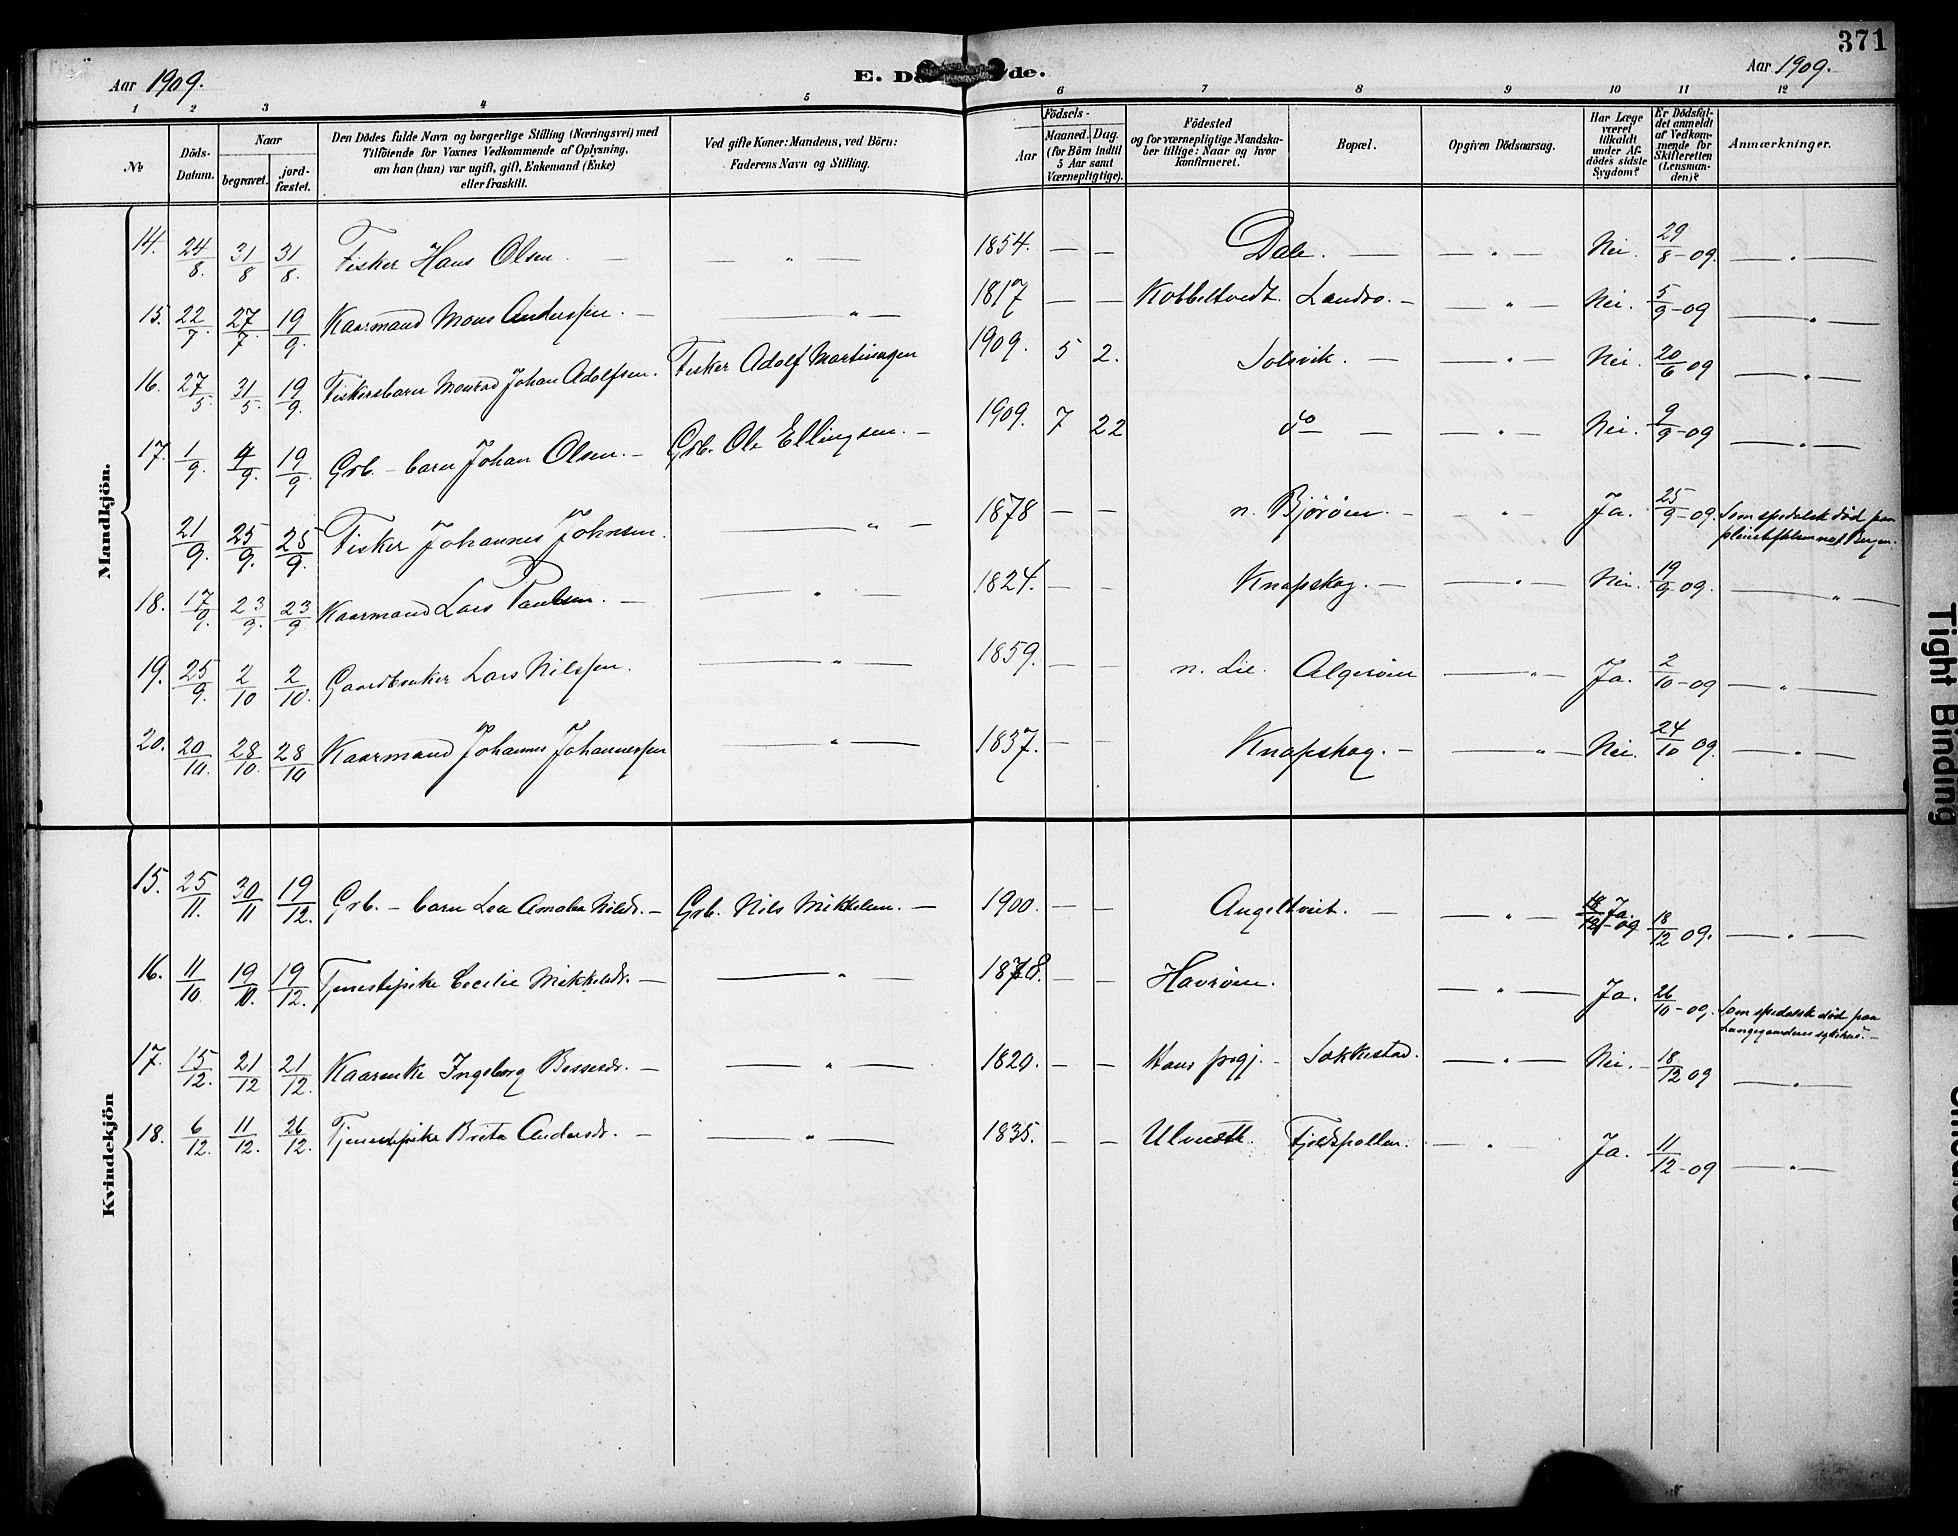 371
Aar 1909.
E. D de.
Aar 1909.
1 2 3 4 5 6 7 8 9 10 11 12
No
Döds-Datum.
Naar
begravet.
jord-fæstet.
Den Dödes fulde Navn og borgerlige Stilling (Næringsvei) med
Tilföiende for Voxnes Vedkommende af Oplysning,
om han (hun) var ugift, gift, Enkemand (Enke)
eller fraskilt.
Ved gifte Koner: Mandens, ved Börn:
Faderens Navn og Stilling.
Födsels-
Aar
Maaned. Dag.
(for Börn indtil
5 Aar samt
Værnepligtige).
Födested
og for værnepligtige Mandska-
ber tillige: Naar og hvor
konfirmeret.
Bopæl.
Opgiven Dödsaarsag.
Har Læge
været
tilkaldt
under Af-
dödes sidste
Sygdom?
Er Dödsfal-
det anmeldt
af Vedkom-
mende for
Skifteretten
(Lensman-
den)?
Anmærkninger.
Mandkjön.
14. 24/8. 31/8 31/8. Fisker Hans Olsen. — — " — 1854. — — Dale. — — " — Nei. 29/8-09. — " —
15. 22/7. 27/7. 19/9. Kaarmand Mons Anderssen. — — " — 1817 — — Kobbeltvedt. Landro. — — " — Nei. 5/9-09 — " —
16. 27/5. 31/5. 19/9. Fiskersbarn Monrad Johan Adolfsen. Fisker Adolf Martinagen 1909. 5 2. Solsvik. — — " — Nei. 20/6 09 — " —
17. 1/9. 4/9. 19/9 Grb. - barn Johan Olsen. — Grb. Ole Ellingsen. — 1909. 7 22 do — — " — Nei. 9/9-09 — " —
21/9. 25/9. 25/9. Fisker Johannes Johnsen. — " — 1878 — — n. Bjørøen. — — " — Ja. 25/9-09. Som spedalsk död paa
pleiestiftelsen no 1 Bergen.
18. 17/9. 23/9. 23/9 Kaarmand Lars Paulsen. — — " — 1824. — — Knapskog. — — " — Nei. 19/9-09. — " —
19. 25/9. 2/10 2/10. Gaardbruker Lars Nilssen. — " — 1859. — — n. Lie. Algerøen — " — Ja. 2/10-09 — " —
20. 20/10. 28/10. 28/10 Kaarmand Johannes Johannessen — " — 1837. — — Knapskog. — — " — Nei. 24/10 09. — " —
Kvindekjön
15. 25/11. 30/11 19/12. Grb. - barn Lea Amalia Nilsdr. — Grb. Nils Mikkelsen. — 1900. — — Angeltveit. — — " — 18/12-09 Ja. 18/12 09. — " —
16. 11/10. 19/10. 19/12. Tjenestepike Cecilie Mikkelsdr. — — " — 1878. — — Havrøen. — " — Ja. 26/10-09. Som spedalsk död paa
Lungegaardens sykehus. —
17. 15/12. 21/12 21/12. Kaarenke Ingeborg Bessesdr. — — " — 1820. — — Haus prgj. — Søkkestad. — " — Nei. — 18/12 09 — " —
18. 6/12. 11/12. 26/12. Tjenestepike Brita Andersdr. — — " — 1835. — — Ulveseth. Fjeldspollen. — " — Ja. 11/12-09 — " —
Tight Binding